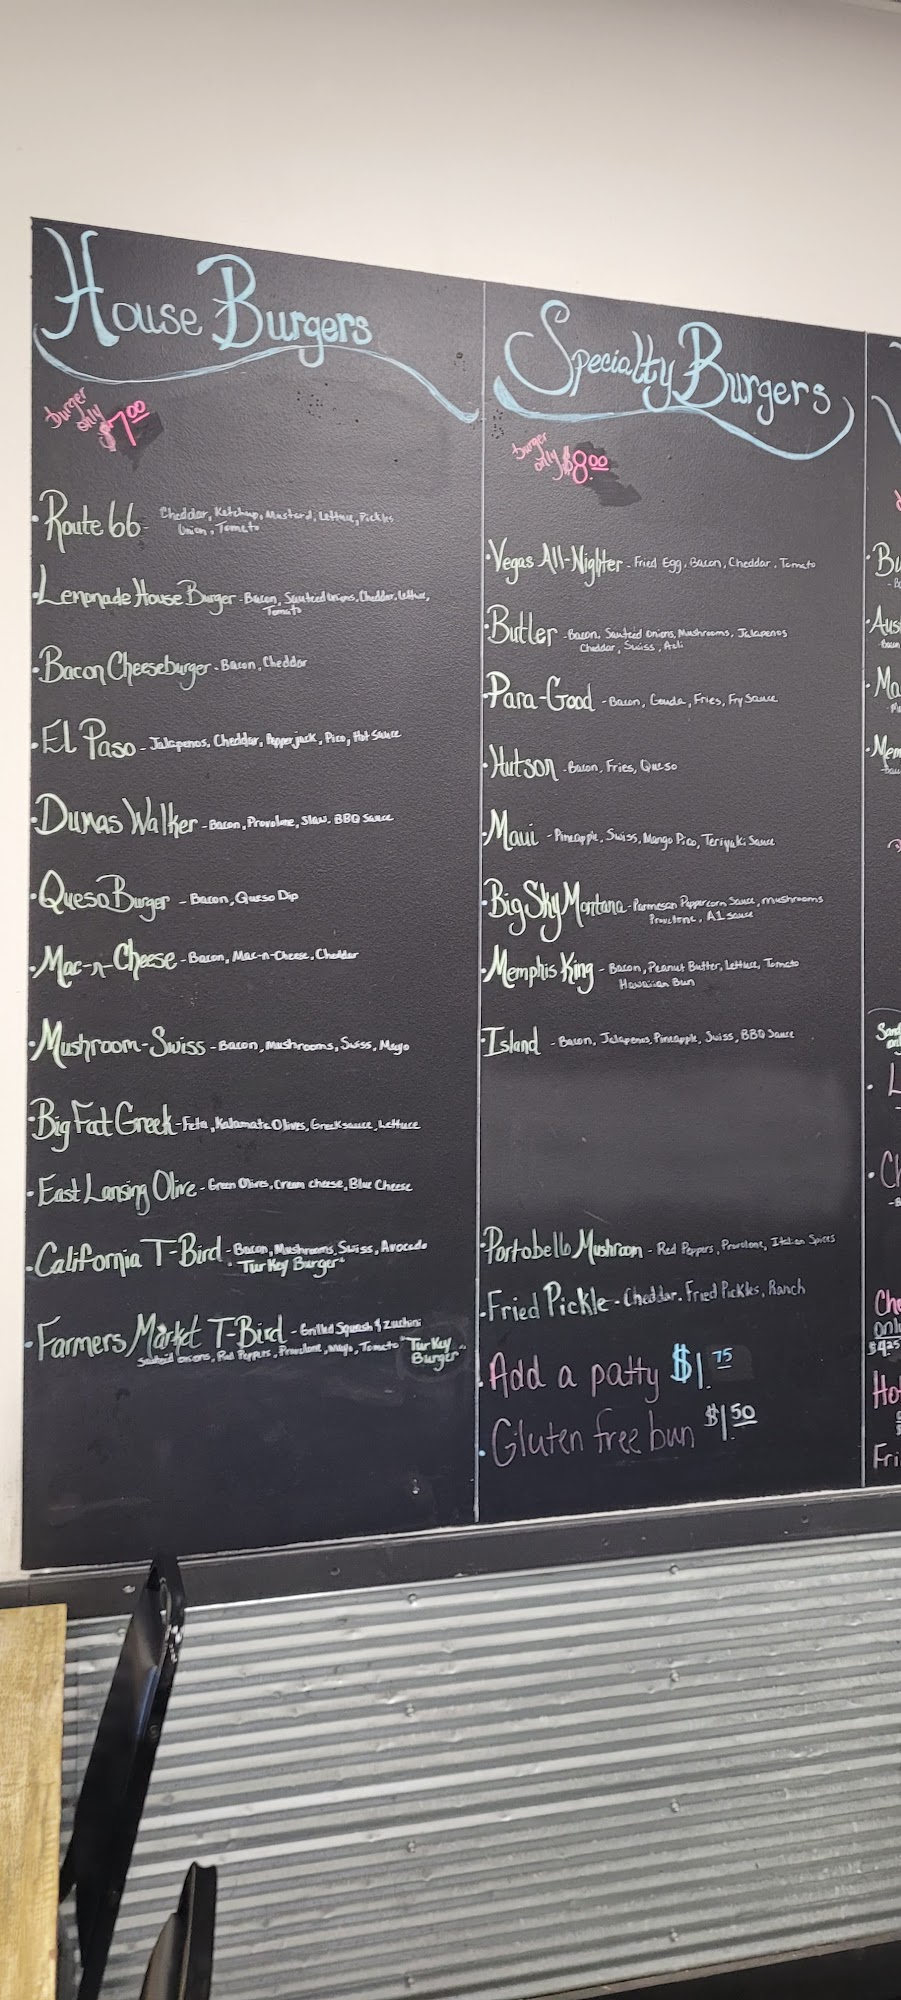 House Burgers
burger
only
$7.00
Route 66- Cheddar, Ketchup, Mustard, Lettuce, Pickles
Onion, Tomato
Lemonade House Burger - Bacon, Sauteed onions, Cheddar, Lettuce,
Tomato
Bacon Cheeseburger - Bacon, Cheddar
El Paso - Jalapenos, Cheddar, Pepperjack, Pico, Hot Sauce
Dumas Walker - Bacon, Provolone, Slaw, BBQ Sauce
Queso Burger - Bacon, Queso Dip
Mac-n-Cheese - Bacon, Mac-n-Cheese, Cheddar
Mushroom-Swiss - Bacon, Mushrooms, Swiss, Mayo
Big Fat Greek - Feta, Kalamata Olives, Greek sauce, Lettuce
East Lansing Olive - Green Olives, Cream cheese, Blue Cheese
California T-Bird - Bacon, Mushrooms, Swiss, Avocado
"Turkey Burger"
Farmers Market T-Bird - Grilled Squash & Zuchini
Sauteed onions, Red Peppers, Provolone, Mayo, Tomato "Turkey
Burger"
Specialty Burgers
burger
only $8.00
Vegas All-Nighter - Fried Egg, Bacon, Cheddar, Tomato
Butler - Bacon, Sauteed Onions, Mushrooms, Jalapenos
Cheddar, Swiss, Aoli
Para-Good - Bacon, Gouda, Fries, Fry Sauce
Hutson - Bacon, Fries, Queso
Maui - Pineapple, Swiss, Mango Pico, Teriyaki Sauce
Big Sky Montana - Parmesan Peppercorn Sauce, mushrooms
Provolone, A1 sauce
Memphis King - Bacon, Peanut Butter, Lettuce, Tomato
Hawaiian Bun
Island - Bacon, Jalapenos, Pineapple, Swiss, BBQ Sauce
Portobello Mushroom - Red Peppers, Provolone, Italian Spices
Fried Pickle - Cheddar, Fried Pickles, Ranch
Add a patty $1.75
Gluten free bun $1.50